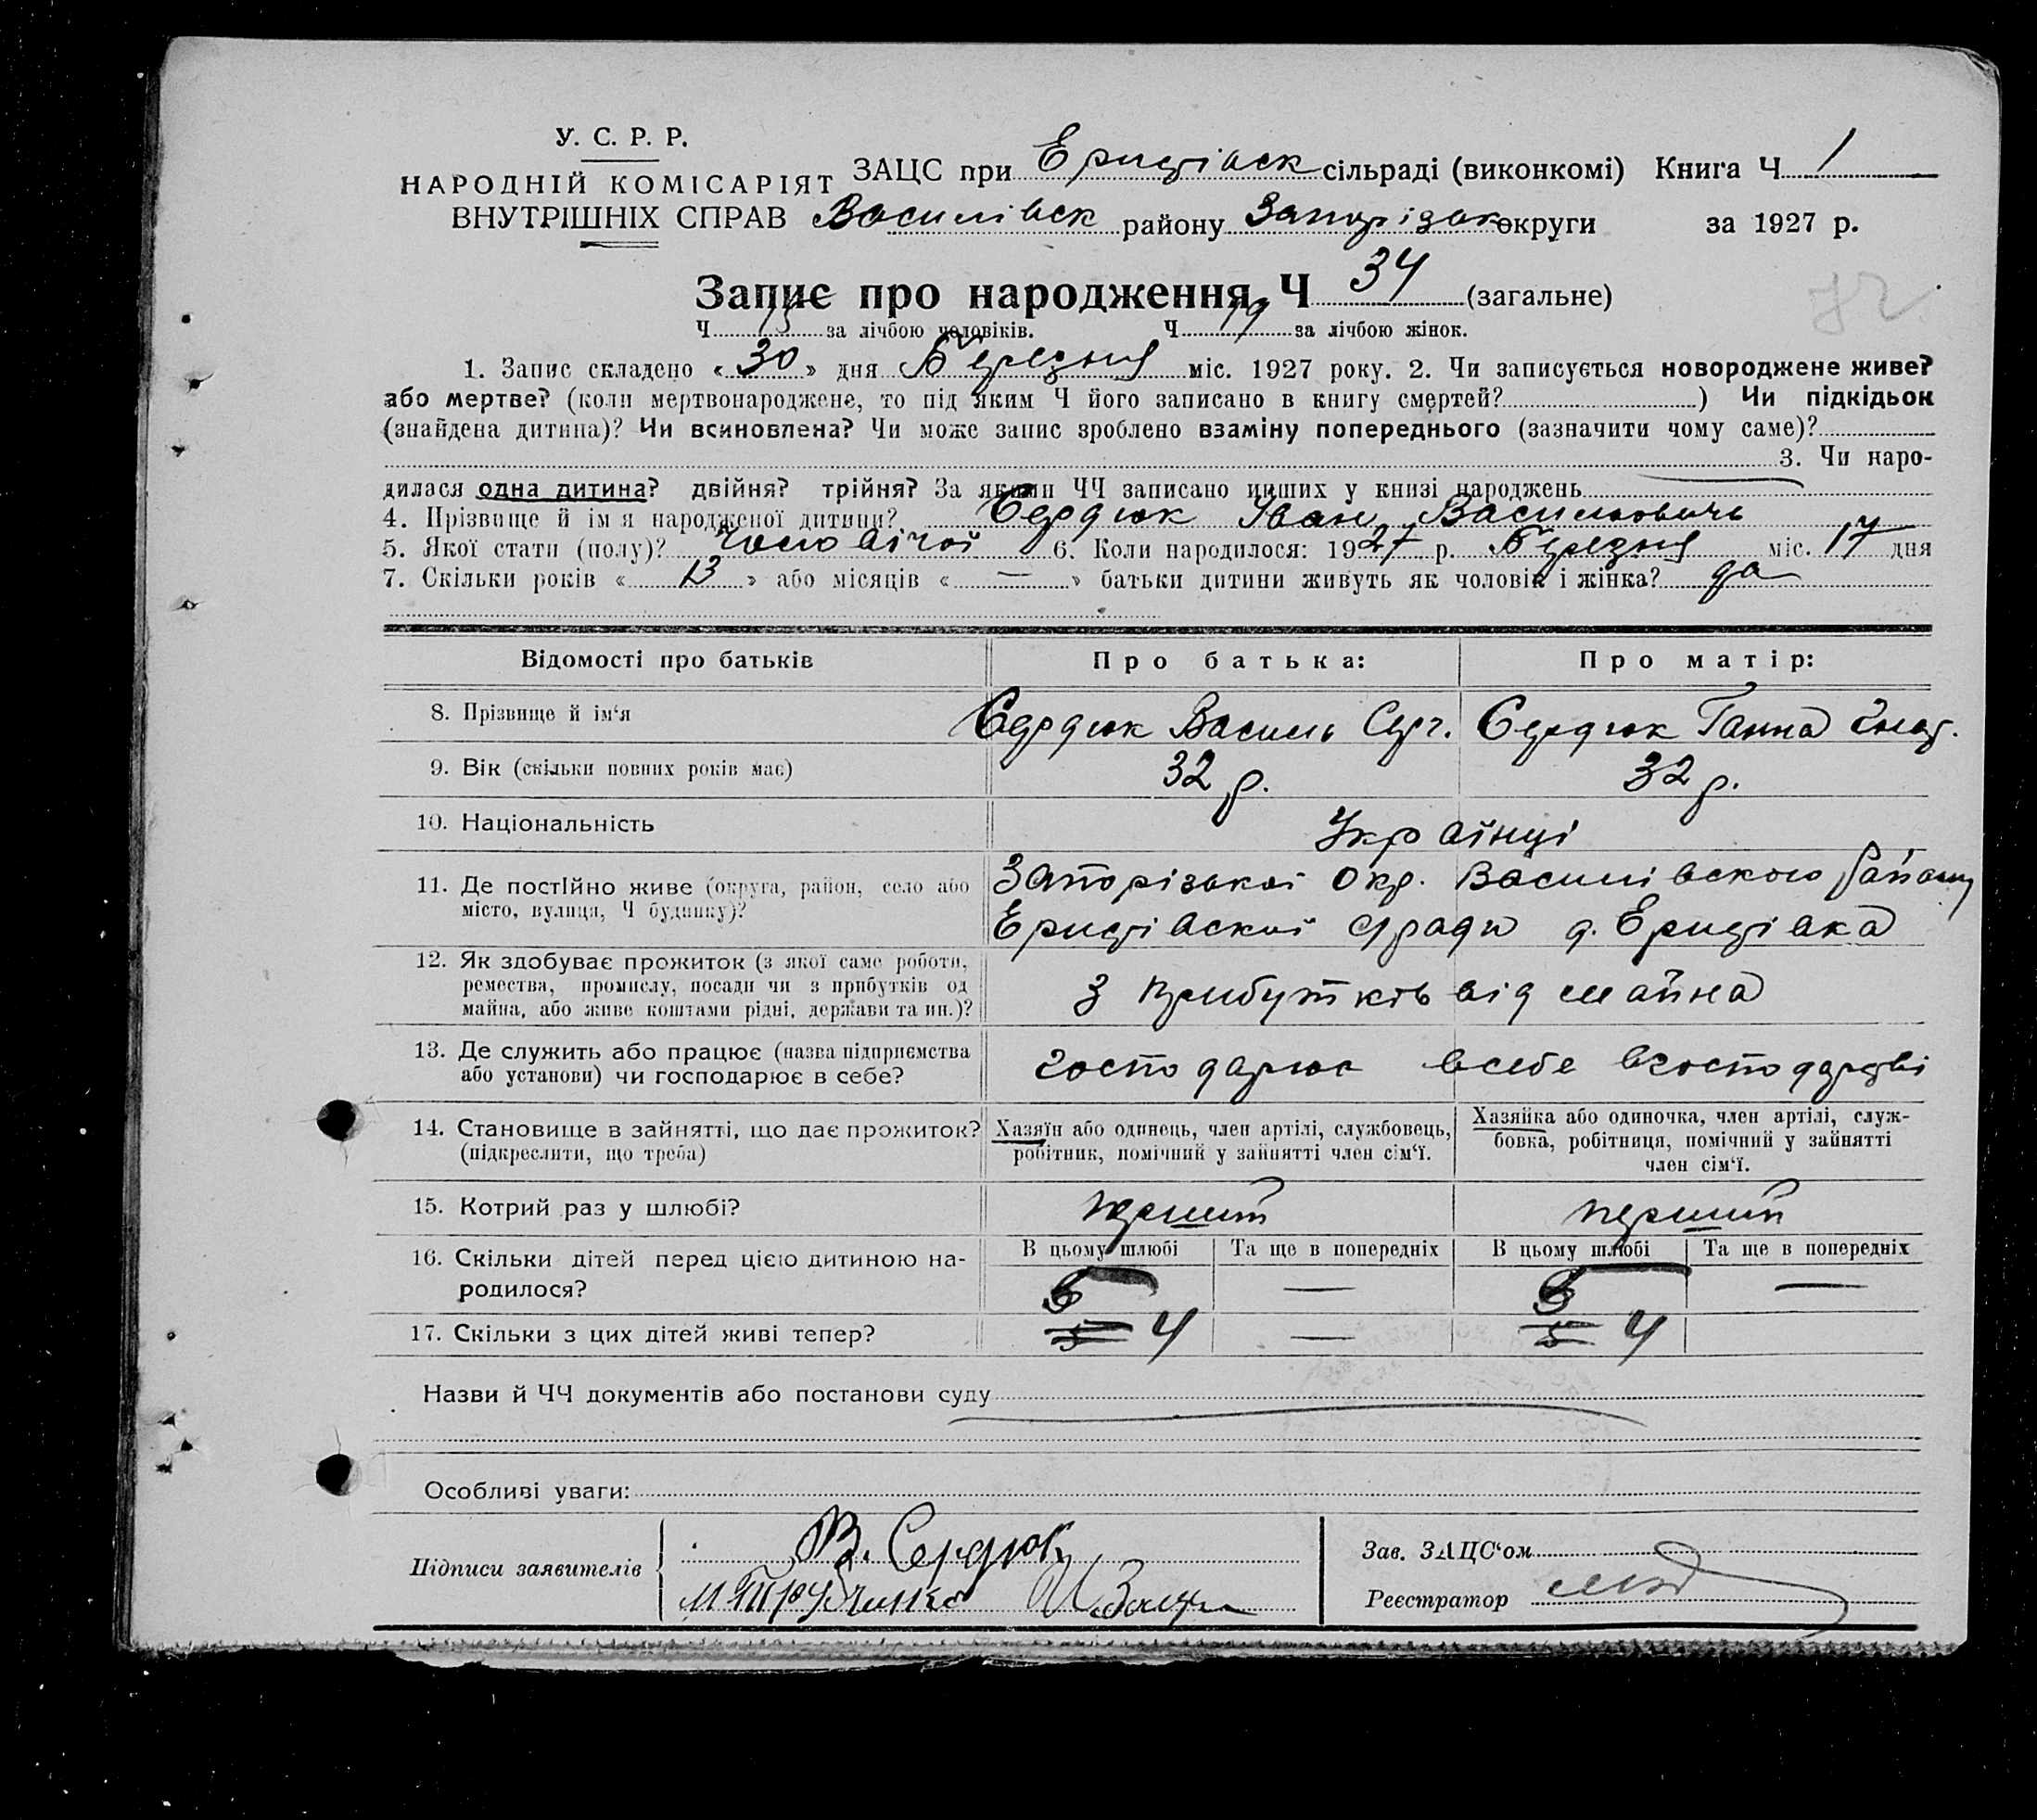 У. С. Р. Р.
НАРОДНІЙ КОМІСАРІЯТ
ВНУТРІШНІХ СПРАВ
ЗАЦС при Еристівск сільраді (виконкомі) Книга Ч 1
Василівск району Запорізьк округи за 1927 р.
Запис про народження Ч 34 (загальне)
Ч 15 за лічбою чоловіків. Ч 19 за лічбою жінок.
1. Запис складено « 30 » дня Березня міс. 1927 року. 2. Чи записується новороджене живе?
або мертве? (коли мертвонароджене, то під яким Ч його записано в книгу смертей? ) Чи підкідьок
(знайдена дитина)? Чи всиновлена? Чи може запис зроблено взаміну попереднього (зазначити чому саме)?
3. Чи наро-
дилася одна дитина? двійня? трійня? За якими ЧЧ записано инших у книзі народжень
4. Прізвище й ім'я народженої дитини? Сердюк Іван Васильовичь
5. Якої стати (полу)? Чоловічої 6. Коли народилося: 1927 р. Березня міс. 17 дня
7. Скільки років « 13 » або місяців « — » батьки дитини живуть як чоловік і жінка? да
Відомості про батьків Про батька: Про матір:
8. Прізвище й ім'я Сердюк Василь Серг. Сердюк Ганна
9. Вік (скільки повних років має) 32 р. 32 р.
10. Національність Українці
11. Де постійно живе (округа, район, село або Запорізької Окр. Василівского Району
місто, вулиця, Ч будинку)? Еристівскої с/ради д. Еристівка
12. Як здобуває прожиток (з якої саме роботи,
ремества, промислу, посади чи з прибутків од
майна, або живе коштами рідні, держави та ин.)? З прибутків від майна
13. Де служить або працює (назва підприємства
або установи) чи господарює в себе? господарює всебе вгосподарстві
14. Становище в зайнятті, що дає прожиток? Хазяїн або одинець, член артілі, службовець, Хазяйка або одиночка, член артілі, служ-
(підкреслити, що треба) робітник, помічний у зайнятті член сім'ї. бовка, робітниця, помічний у зайнятті
член сім'ї.
15. Котрий раз у шлюбі? перший перший
16. Скільки дітей перед цією дитиною на- В цьому шлюбі Та ще в попередніх В цьому шлюбі Та ще в попередніх
родилося? — —
17. Скільки з цих дітей живі тепер? 5 4 — 5 4
Назви й ЧЧ документів або постанови суду
Особливі уваги:
Підписи заявителів В. Сердюк Зав. ЗАЦС'ом
Реєстратор